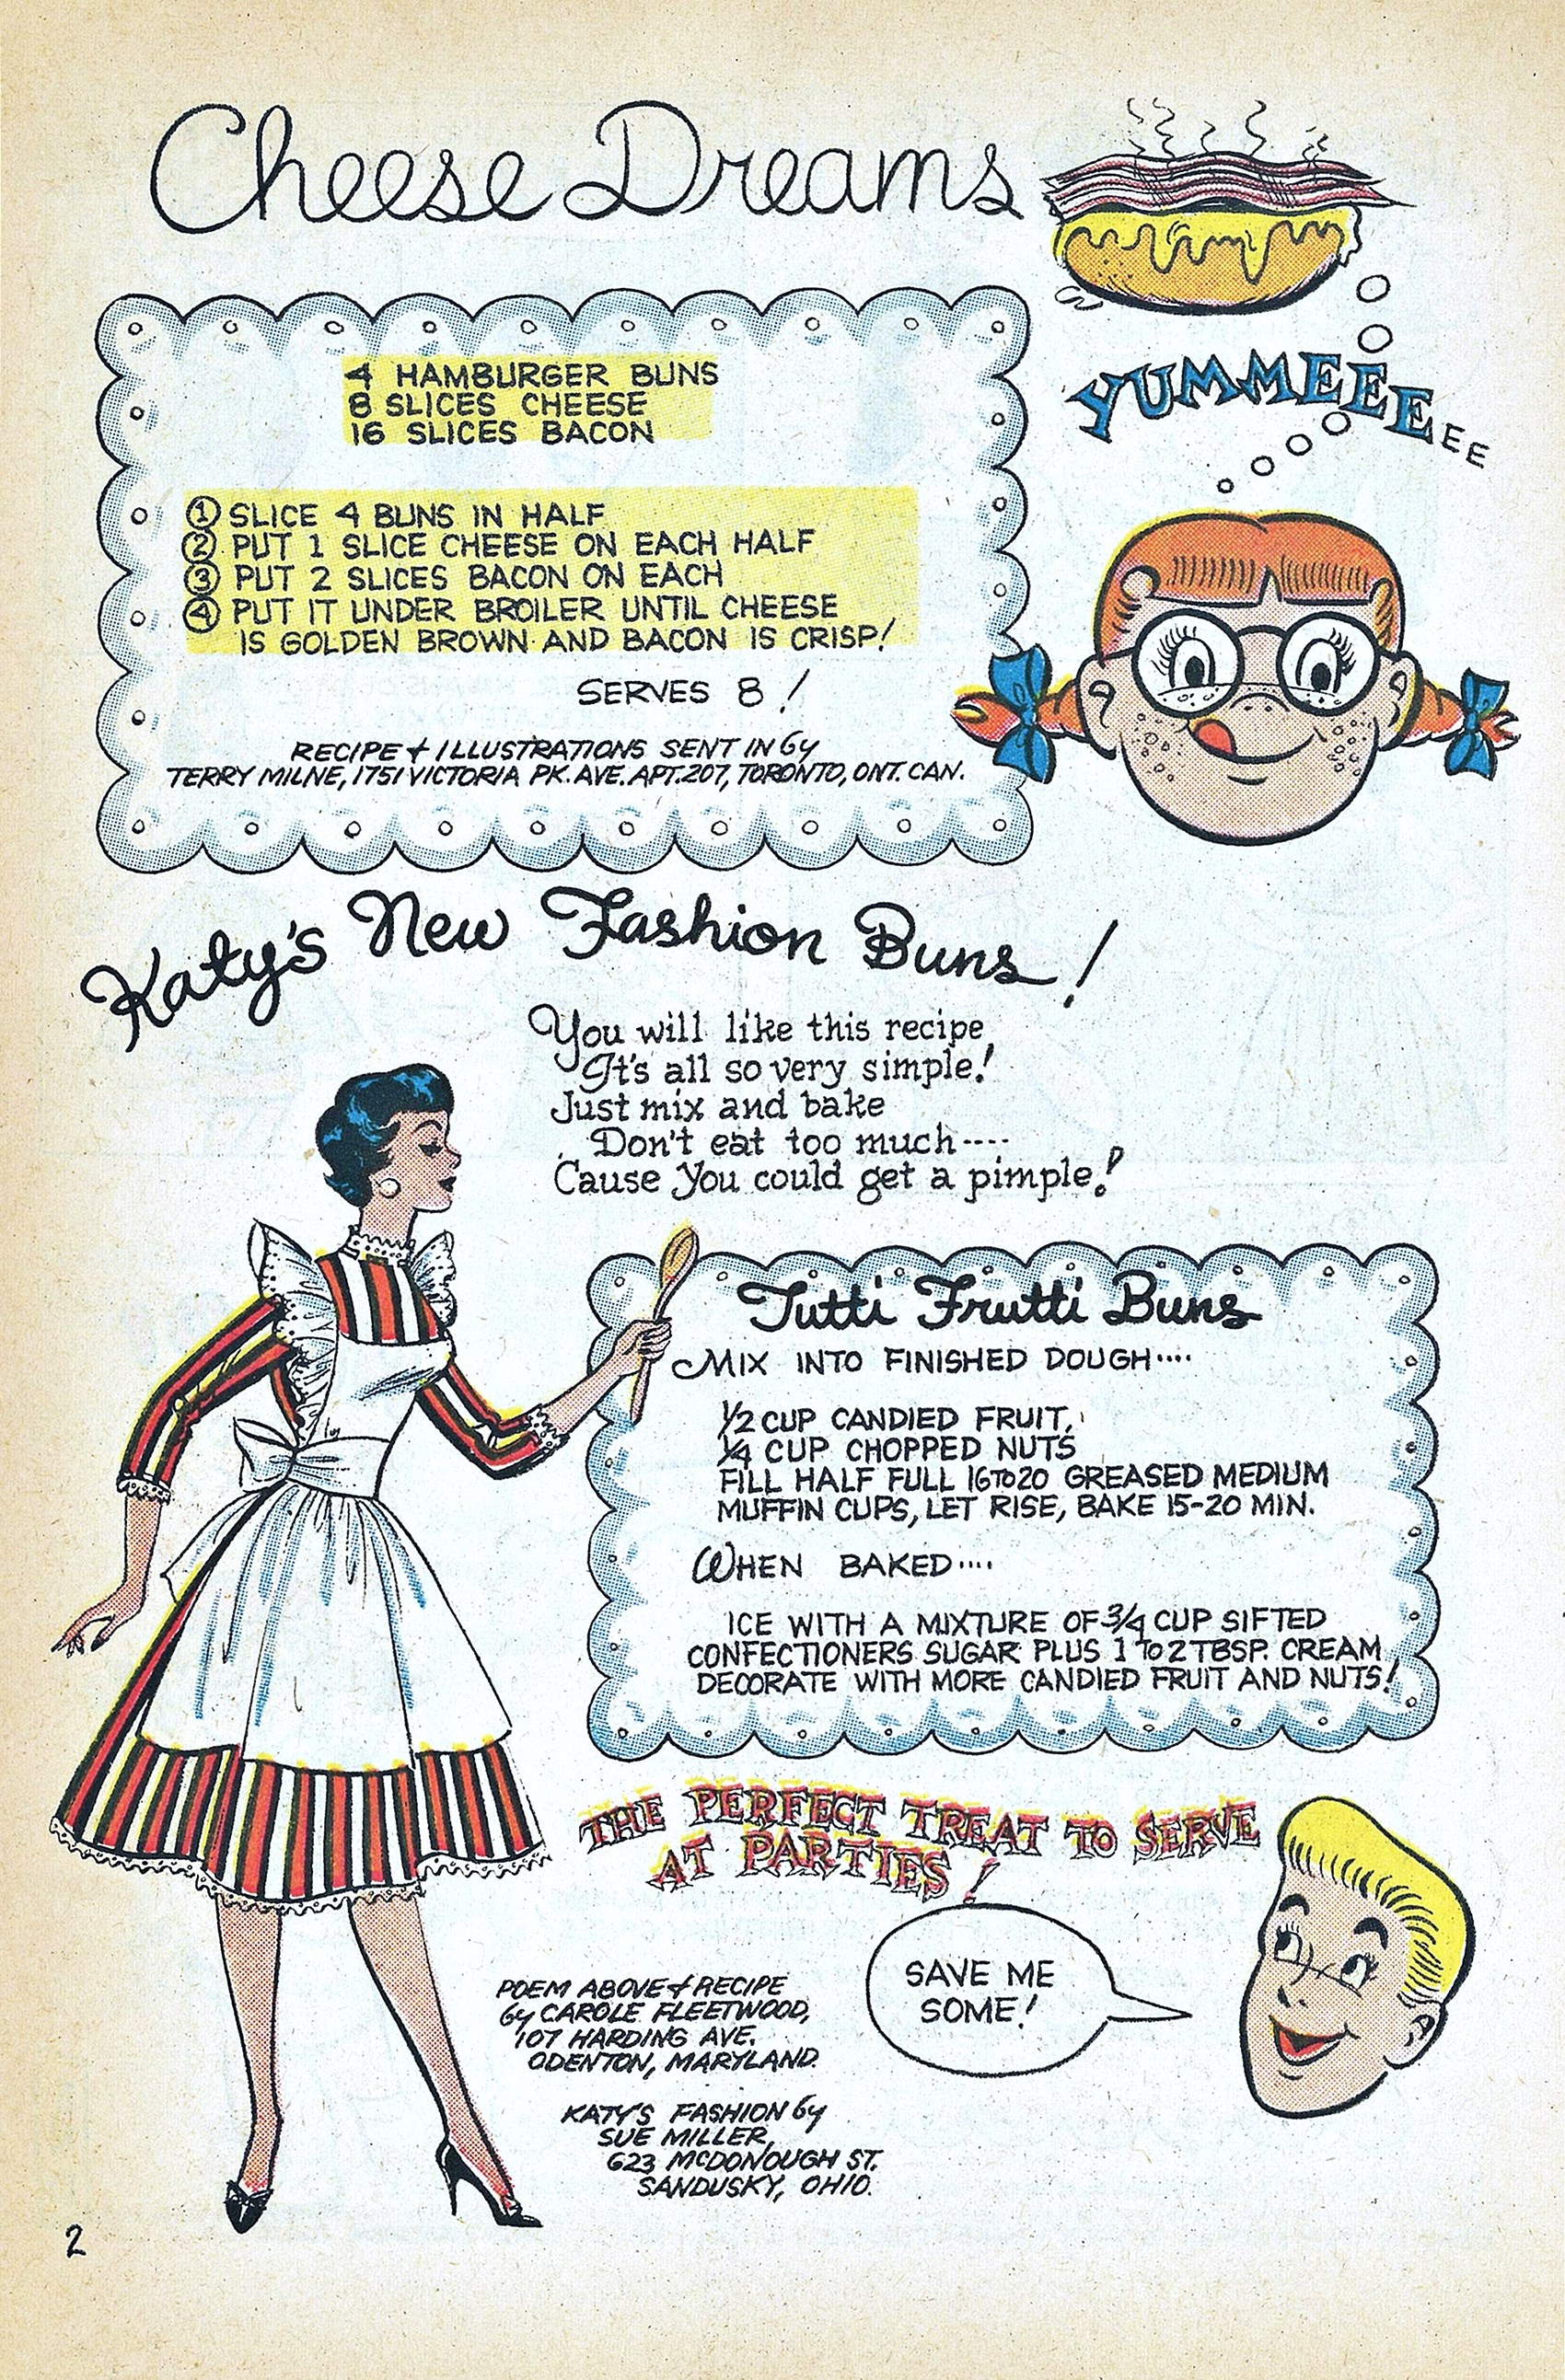 Cheese Dreams
4 HAMBURGER BUNS
8 SLICES CHEESE
16 SLICES BACON
1 SLICE 4 BUNS IN HALF
2 PUT 1 SLICE CHEESE ON EACH HALF
3 PUT 2 SLICES BACON ON EACH
4 PUT IT UNDER BROILER UNTIL CHEESE
IS GOLDEN BROWN AND BACON IS CRISP!
SERVES 8!
RECIPE & ILLUSTRATIONS SENT IN by
TERRY MILNE, 1751 VICTORIA PK. AVE. APT. 207, TORONTO, ONT. CAN.
YUMMEEEEE
Katy's New Fashion Buns!
You will like this recipe,
It's all so very simple!
Just mix and bake
Don't eat too much----
Cause you could get a pimple!
Tutti Frutti Buns
MIX INTO FINISHED DOUGH....
1/2 CUP CANDIED FRUIT,
1/4 CUP CHOPPED NUTS
FILL HALF FULL 16 TO 20 GREASED MEDIUM
MUFFIN CUPS, LET RISE, BAKE 15-20 MIN.
WHEN BAKED....
ICE WITH A MIXTURE OF 3/4 CUP SIFTED
CONFECTIONERS SUGAR PLUS 1 TO 2 TBSP. CREAM
DECORATE WITH MORE CANDIED FRUIT AND NUTS!
THE PERFECT TREAT TO SERVE
AT PARTIES!
SAVE ME
SOME!
POEM ABOVE & RECIPE
by CAROLE FLEETWOOD,
107 HARDING AVE.
ODENTON, MARYLAND.
KATY'S FASHION by
SUE MILLER,
623 McDONOUGH ST.
SANDUSKY, OHIO.
2